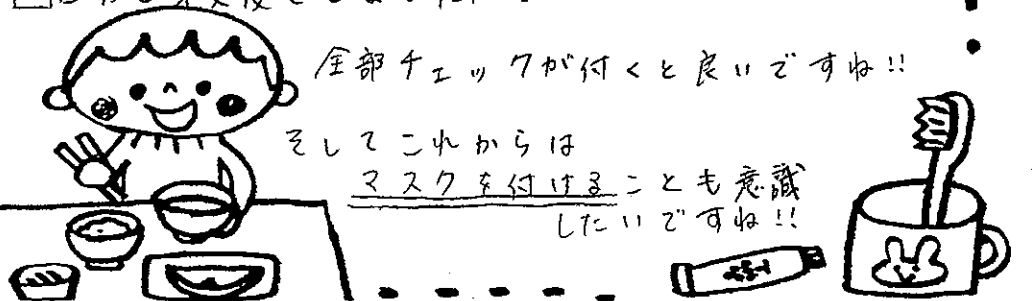 全部チェックが付くと良いですね!!
そしてこれからは
マスクを付けることも意識
したいですね!!